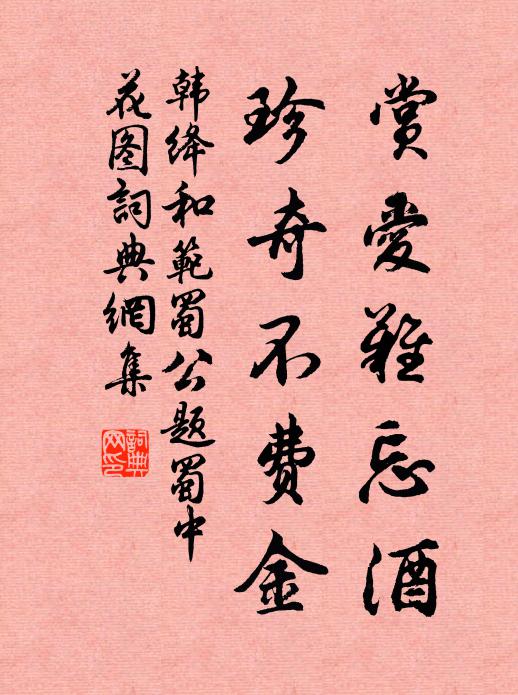 赏爱难忘酒
珍奇不费金
韩绛和範蜀公题蜀中
花图詞典網集
詞典
网印